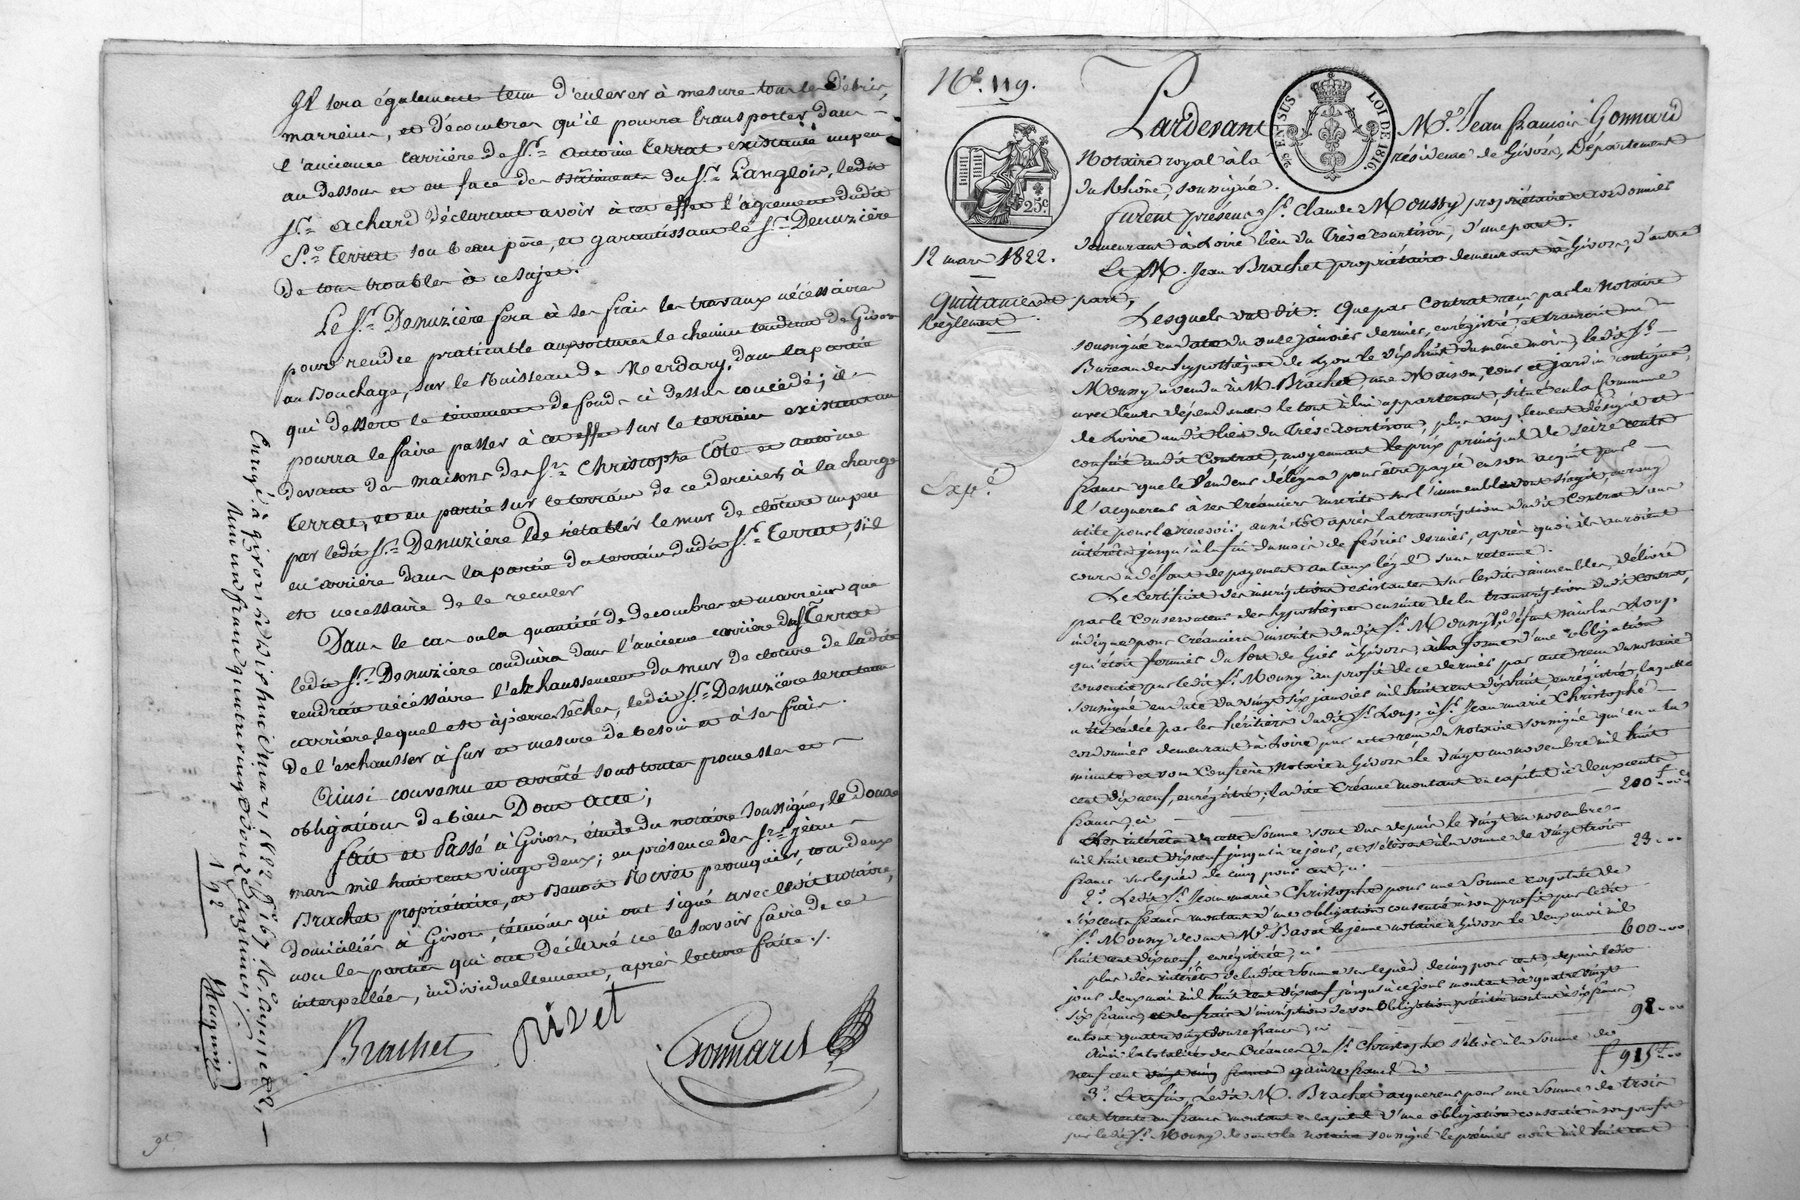 Il sera également tenu d'enlever à mesure tous les débris,
marreins, et décombres qu'il pourra transporter dans
l'ancienne carrière de Sr. Antoine Terrat existante un peu
au dessous et en face des bâtiments du Sr. Langlois, ledit
Sr. Achard déclarant avoir à cet effet l'agrément dudit
Sr. Terrat son beau père, et garantissant le Sr. Denuzière
de tous troubles à ce sujet.
Le Sr. Denuzière fera à ses frais les travaux nécessaires
pour rendre praticable aux voitures le chemin tendant de Givors
au Bouchage, sur le Ruisseau de Merdary, dans la partie
qui dessert le tènement de fonds ci dessus concédé; il
pourra le faire passer à cet effet sur le terrain existant au
devant des maisons des Srs. Christophe Cote et Antoine
Terrat, et en partie sur le terrain de ce dernier, à la charge
par ledit Sr. Denuzière de rétablir le mur de clôture un peu
en arrière dans la partie du terrain dudit Sr. Terrat, s'il
est nécessaire de le reculer
Dans le cas où la quantité de décombres et marreins que
ledit Sr. Denuzière conduira dans l'ancienne carrière du Sr. Terrat
rendrait nécessaire l'exhaussement du mur de clôture de ladite
carrière, lequel est à pierres sèches, ledit Sr. Denuzière sera tenu
de l'exhausser à fur et mesure de besoin et à ses frais.
Ainsi convenu et arrêté sous toutes promesses et
obligations de biens Dont Acte;
fait et Passé à Givors, étude du notaire soussigné, le Douze
mars mil huit cent vingt deux; en présence des Srs. Jean
Brachet propriétaire, et Benoît Rivet perruquier, tous deux
domiciliés à Givors, témoins qui ont signé avec ledit notaire,
non les parties qui ont déclaré ne le savoir faire de ce
interpellées, individuellement, après lecture faite.
Brachet Rivet Gonnard
Enregé. à Givors le dix huit mars 1822, fo. 167
192
No. 119.
12 mars 1822.
Quittance et
Règlement
Expé.
25c.
LOI DE 1816.
EN SUS.
Pardevant Me. Jean François Gonnard
Notaire royal à la résidence de Givors, Département
du Rhône, soussigné.
furent présens Sr. Claude Moussy propriétaire et cordonnier
demeurant à Loire lieu du Très courtiron, d'une part.
Et M. Jean Brachet propriétaire demeurant à Givors, d'autre
part,
Lesquels ont dit: Que par Contrat reçu par le Notaire
soussigné en date du onze janvier dernier, enrégistré, et transcrit au
Bureau des hypothèques de Lyon le dix huit du même mois, ledit Sr.
Moussy a vendu à M. Brachet, une Maison, cour et jardin contigus,
avec leurs dépendances le tout à lui appartenant, situé en la Commune
de Loire audit lieu du Très courtiron, plus amplement désigné et
confiné audit Contrat, moyennant le prix principal de seize cents
francs que le Vendeur délégua pour être payés en son acquit par
l'acquéreur à ses créanciers inscrits sur l'immeuble dont s'agit, en rang
utile pour le recevoir, aussitôt après la transcription dudit Contrat sans
intérêts jusqu'à la fin du mois de février dernier, après quoi ils auroient
cours à défaut de payement au taux légal sans retenue.
Le Certificat des inscriptions existantes sur lesdits immeubles, délivré
par le Conservateur des hypothèques ensuite de la transcription dudit Contrat,
indique pour Créanciers inscrits dudit Sr. Moussy 1o. défunt Nicolas Loup
qui étoit fermier du Pont de Gier à Givors, à la forme d'une obligation
consentie par ledit Sr. Moussy au profit de ce dernier par acte reçu du notaire
soussigné en date du vingt six janvier mil huit cent dix huit, enrégistré, laquelle
a été cédée par les héritiers dudit Sr. Loup à Sr. Jean marie Christophe
cordonnier demeurant à Loire par acte reçu du Notaire soussigné qui en a la
minute et son Confrère, Notaire à Givors le vingt un novembre mil huit
cent dix neuf, enrégistré; ladite Créance montant en capital à deux cents
francs, ci 200f. 00c
Les intérêts de cette Somme sont dus depuis le vingt un novembre
mil huit cent dix neuf jusqu'à ce jour, et s'élèvent à la somme de vingt trois
francs sur le pied de cinq pour cent, ci 23. 00
2o. Ledit Sr. Jean marie Christophe pour une Somme capitale de
six cents francs montant d'une obligation consentie à son profit par ledit
Sr. Moussy devant Me. Basset le jeune notaire à Givors le deux mai mil
huit cent dix neuf, enrégistrée, ci 600. 00
plus des intérêts de ladite Somme sur le pied de cinq pour cent, depuis ledit
jour deux mai mil huit cent dix neuf jusqu'à ce jour montant à quatre vingt
six francs, et des frais d'inscription de son obligation précitée montant à six francs
en tout quatre vingt douze francs, ci 92. 00
Ainsi la totalité des Créances du Sr. Christophe s'élève à la Somme de
neuf cent quinze francs ci f 915. 00
3o. Et enfin, Ledit M. Brachet acquéreur pour une Somme de trois
cent trente un francs montant en capital d'une obligation consentie à son profit
par ledit Sr. Moussy devant le notaire soussigné le premier août mil huit cent